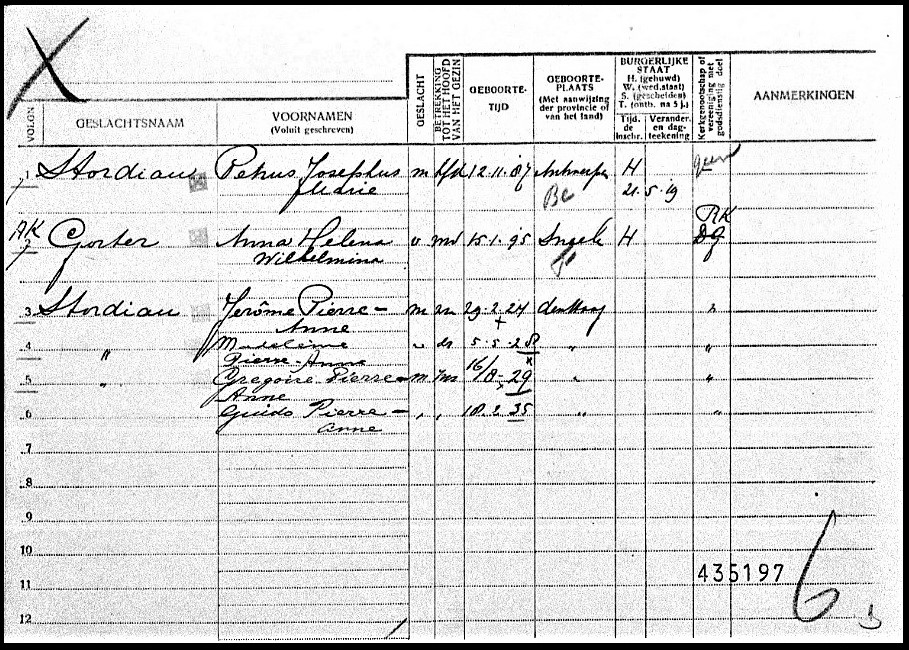 VOLGN.
GESLACHTSNAAM
VOORNAMEN
(Voluit geschreven)
GESLACHT
BETREKKING
TOT HET HOOFD
VAN HET GEZIN
GEBOORTE-
TIJD
GEBOORTE-
PLAATS
(Met aanwijzing
der provincie of
van het land)
BURGERLIJKE
STAAT
H. (gehuwd)
W. (wed.staat)
S. (gescheiden)
T. (ontb. na 5 j.)
Tijd.
de
inschr.
Verander.
en dag-
teekening
Kerkgenootschap of
vereeniging met
godsdienstig doel
AANMERKINGEN
1 Stordiau Petrus Josephus m hfd 12.11.87 Antwerpen H geen
Marie Be 21.5.19
RK
AK
2 Gorter Anna Helena v md 15.1.95 H
Wilhelmina
3 Stordiau Jerôme Pierre= m zn 29.2.24 den Haag "
Anne
4 " Madeleine " dr 5.5.28 " "
Pierre-Anne
5 " Gregoire Pierre= m zn 16/8-29 " "
Anne
6 Guido Pierre= " " 18.2.35 " "
Anne
7
8
9
10
11
12
435197
6